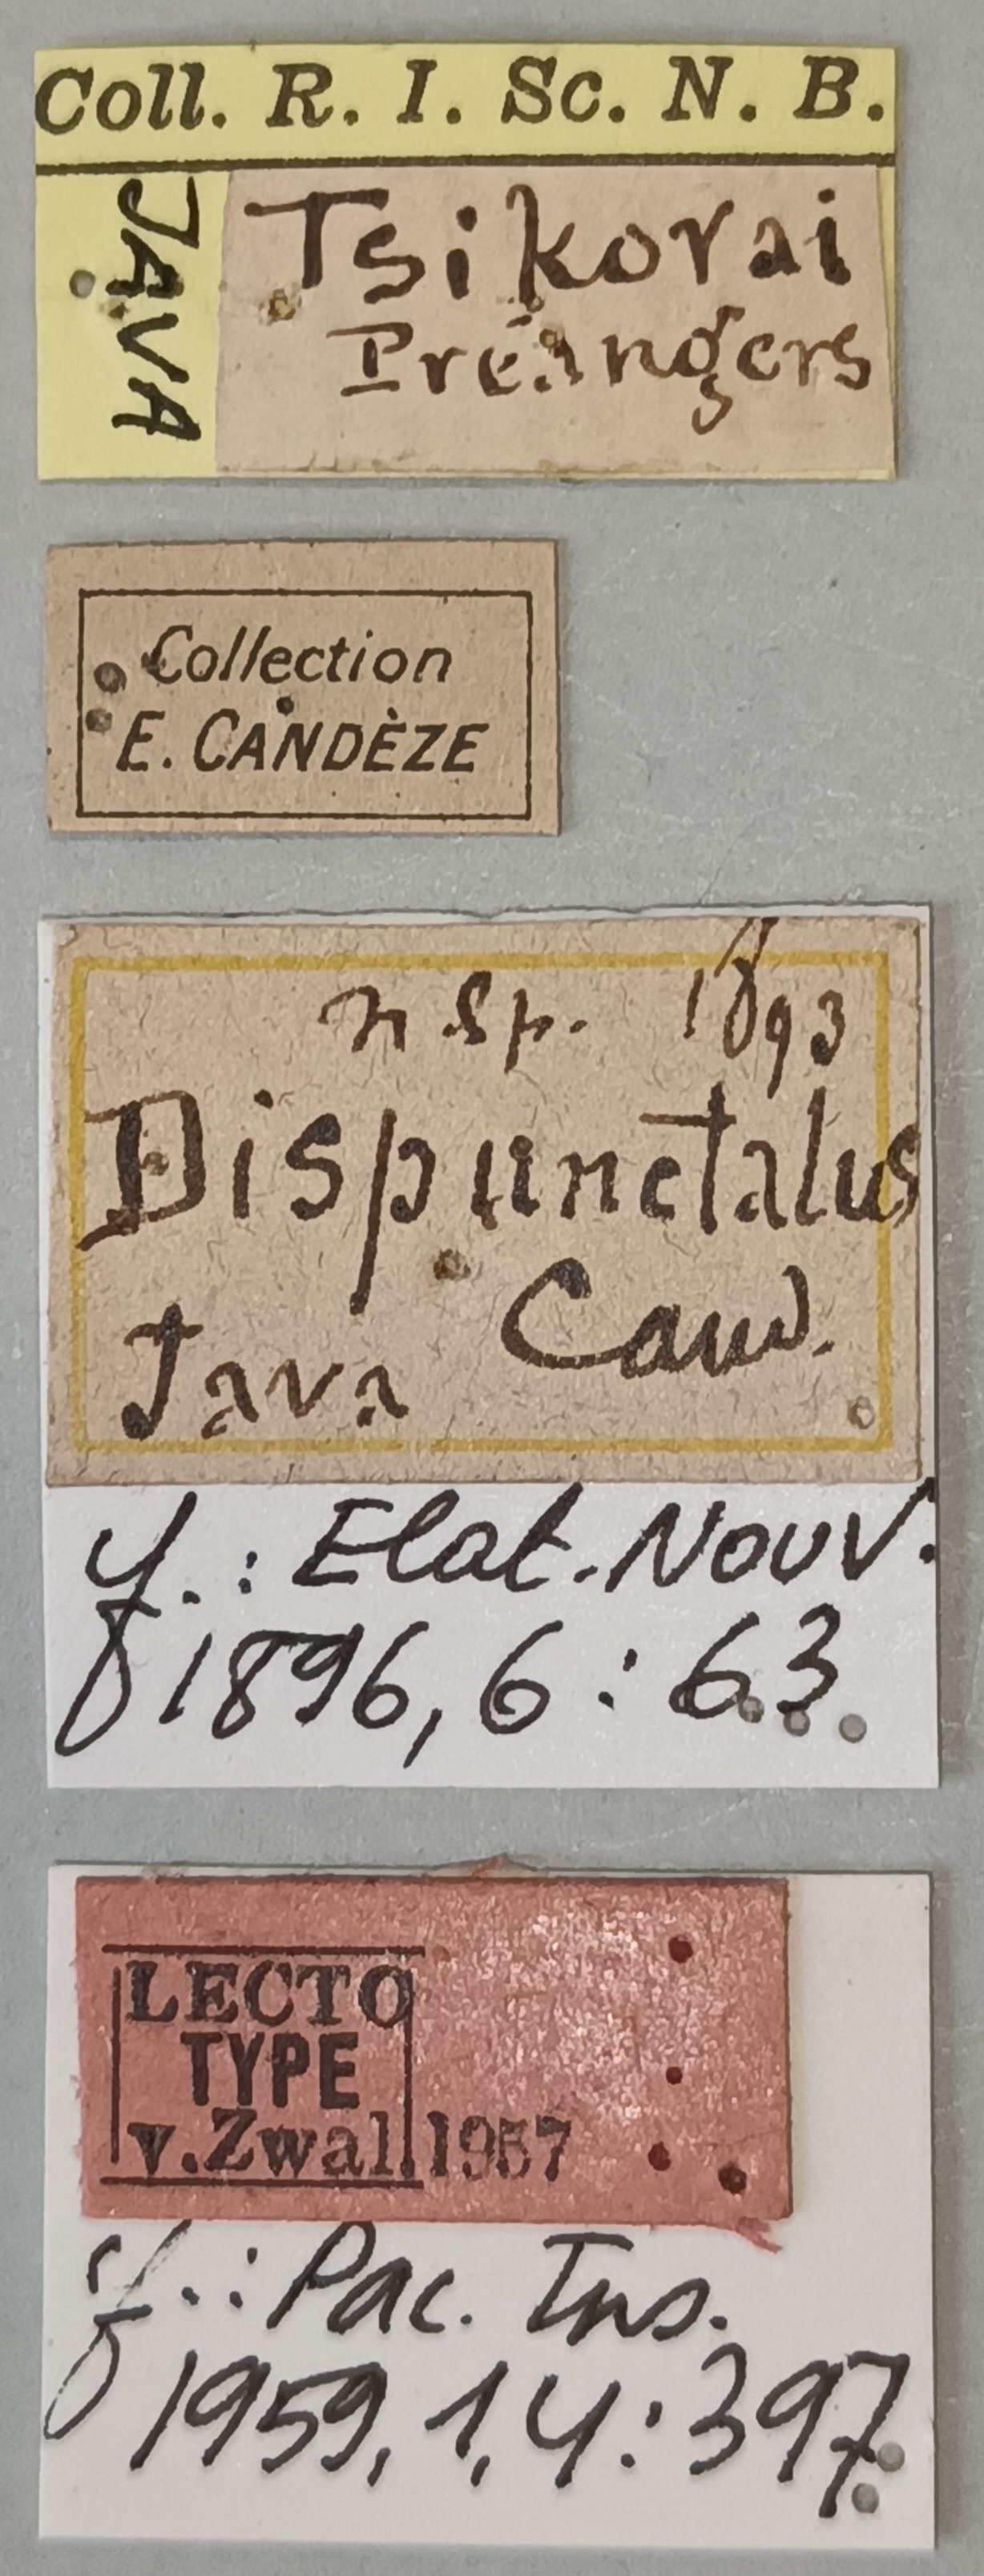 Coll. R. I. Sc. N. B.
JAVA
Tsikorai
Préangers
Collection
E. CANDÈZE
n sp. 1893
Dispunctalus
Java Cand.
cf.: Elat. Nouv.
1896, 6 : 63
LECTO
TYPE
v.Zwal. 1957
cf.: Pac. Ins.
1959, 1, 4 : 397